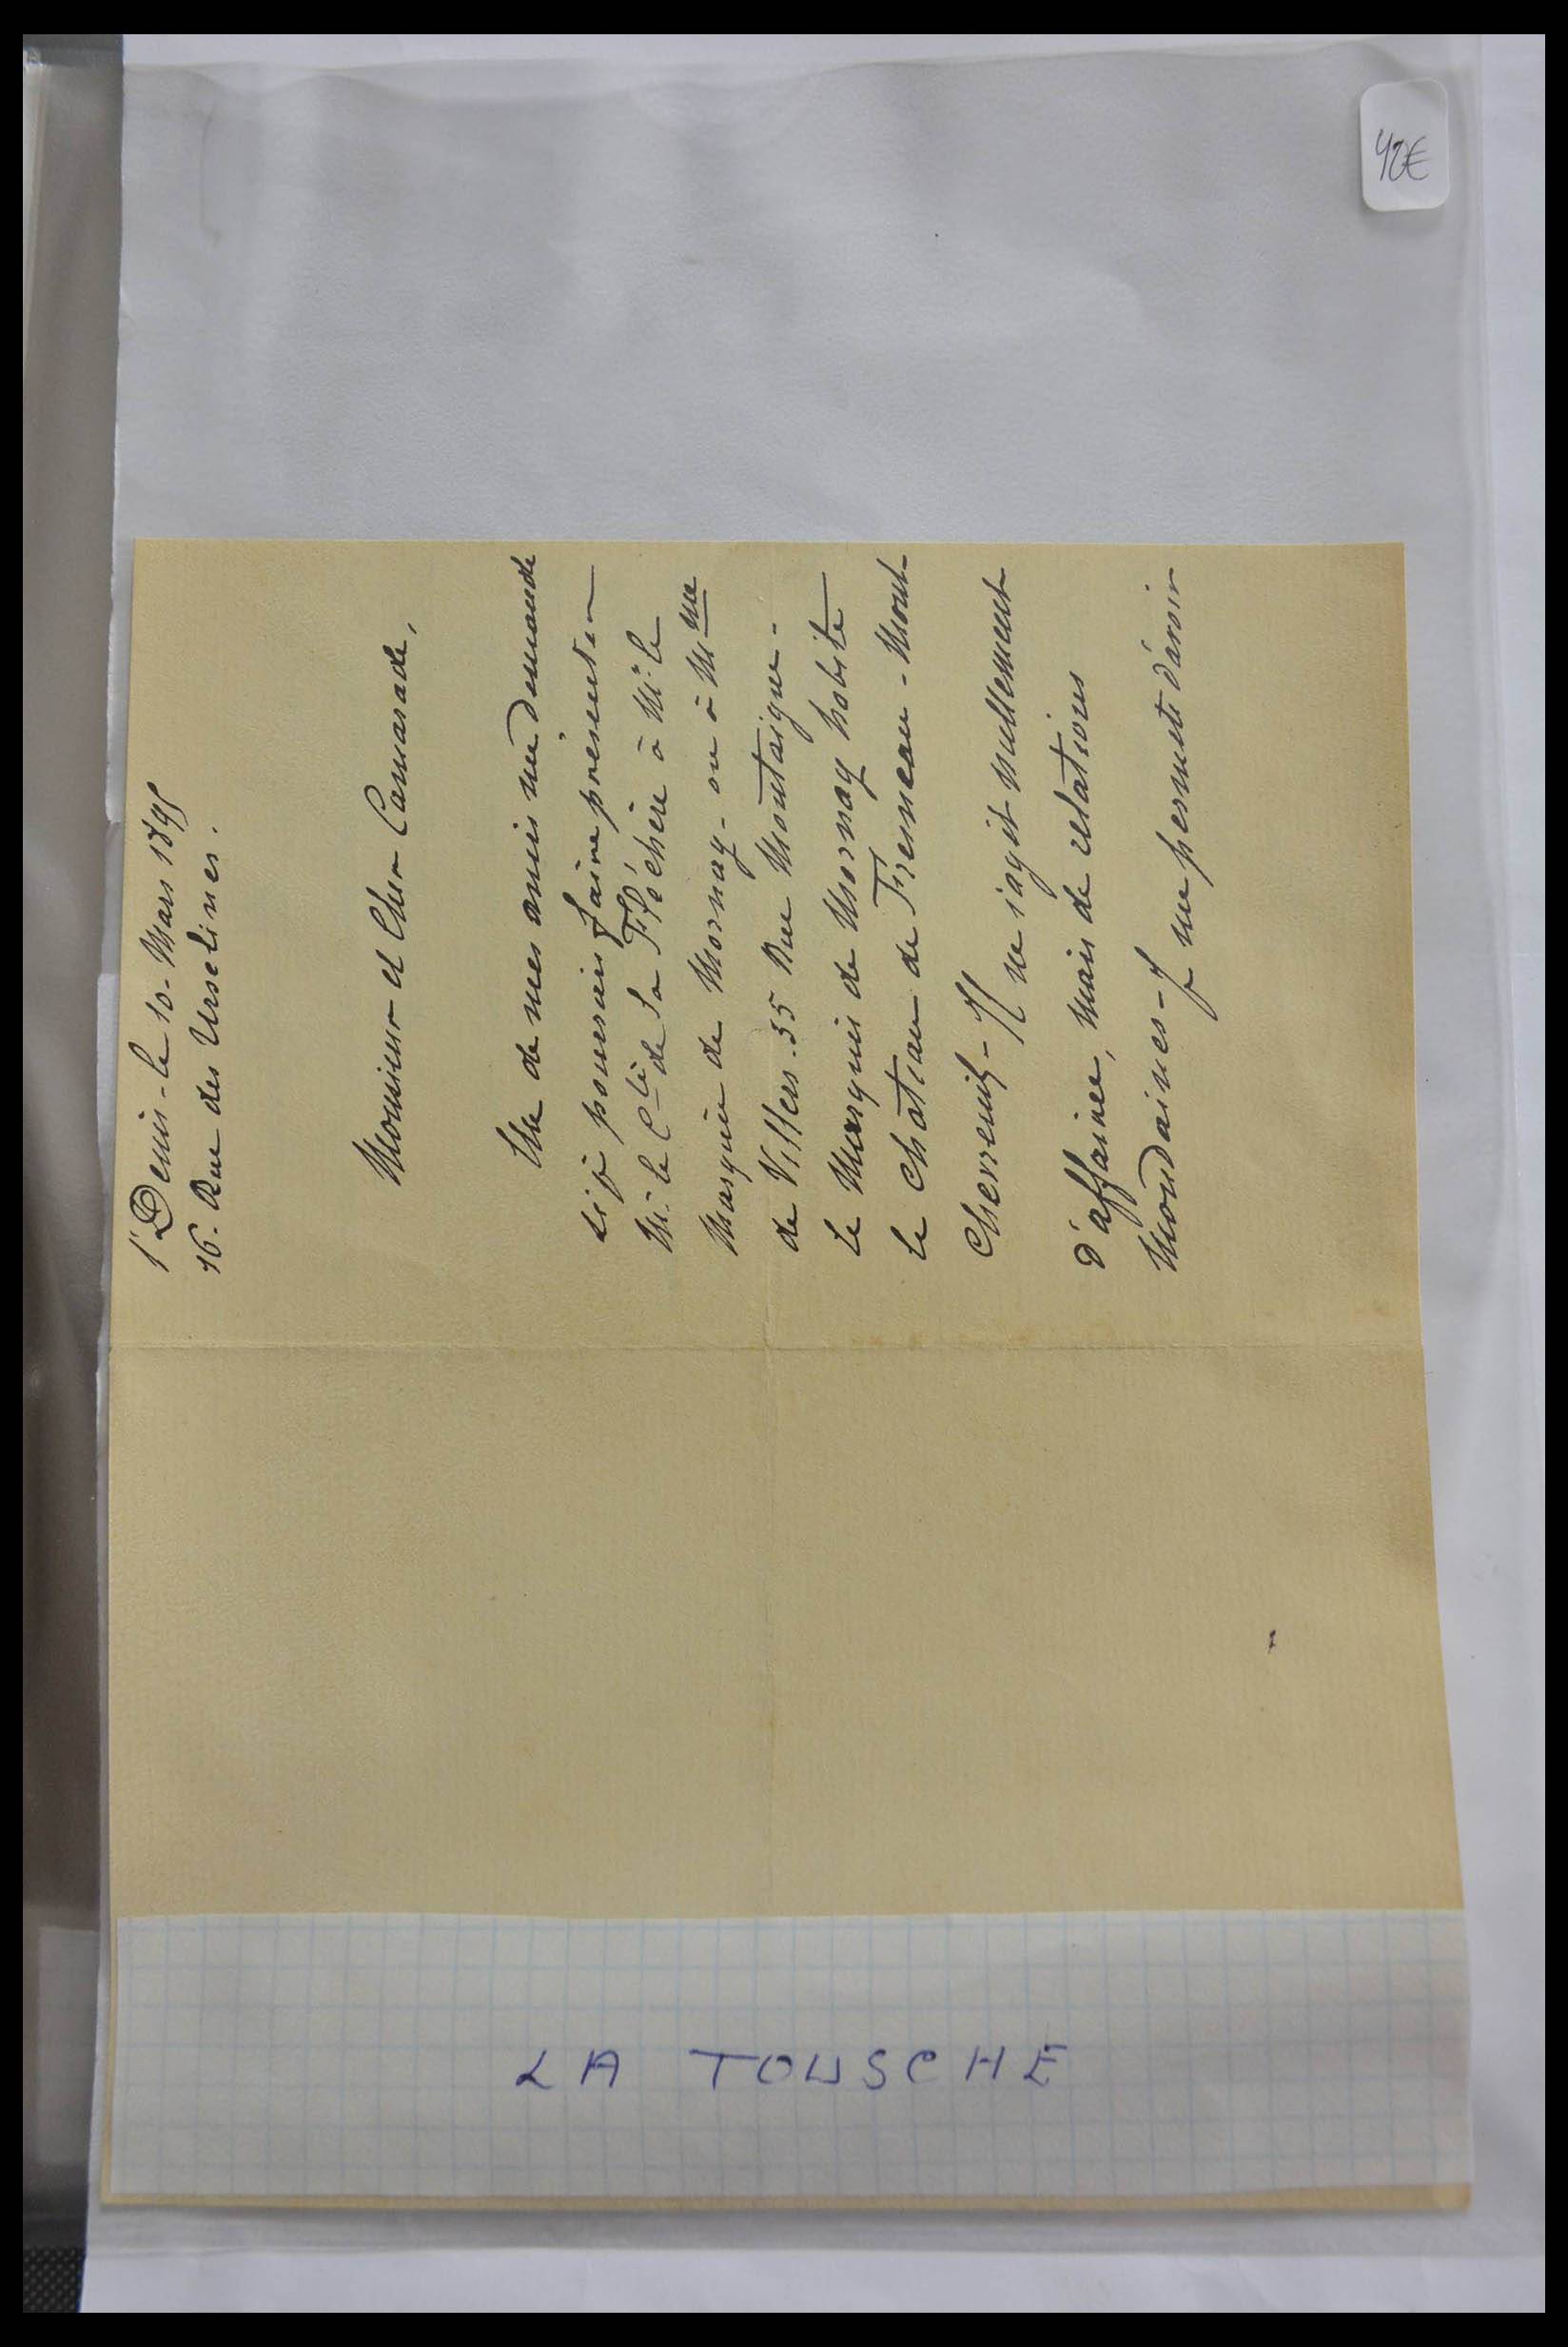 St Denis - le 10 - Mars 1895
16 - Rue des Urselines.
Monsieur et Cher Camarade,
Un de mes amis me demande
si je pourrais faire présenter
Mr le Cte de La Fléchère à Mr le
Marquis de Mornay - ou à Mme
de Villers - 35 Rue Montaigne -
Le Marquis de Mornay habite
le Château de Fresneau - Mont
Cherreuil - Il ne s'agit nullement
d'affaires, mais de relations
Mondaines - Je me permets d'avoir
LA TOUSCHE
40€